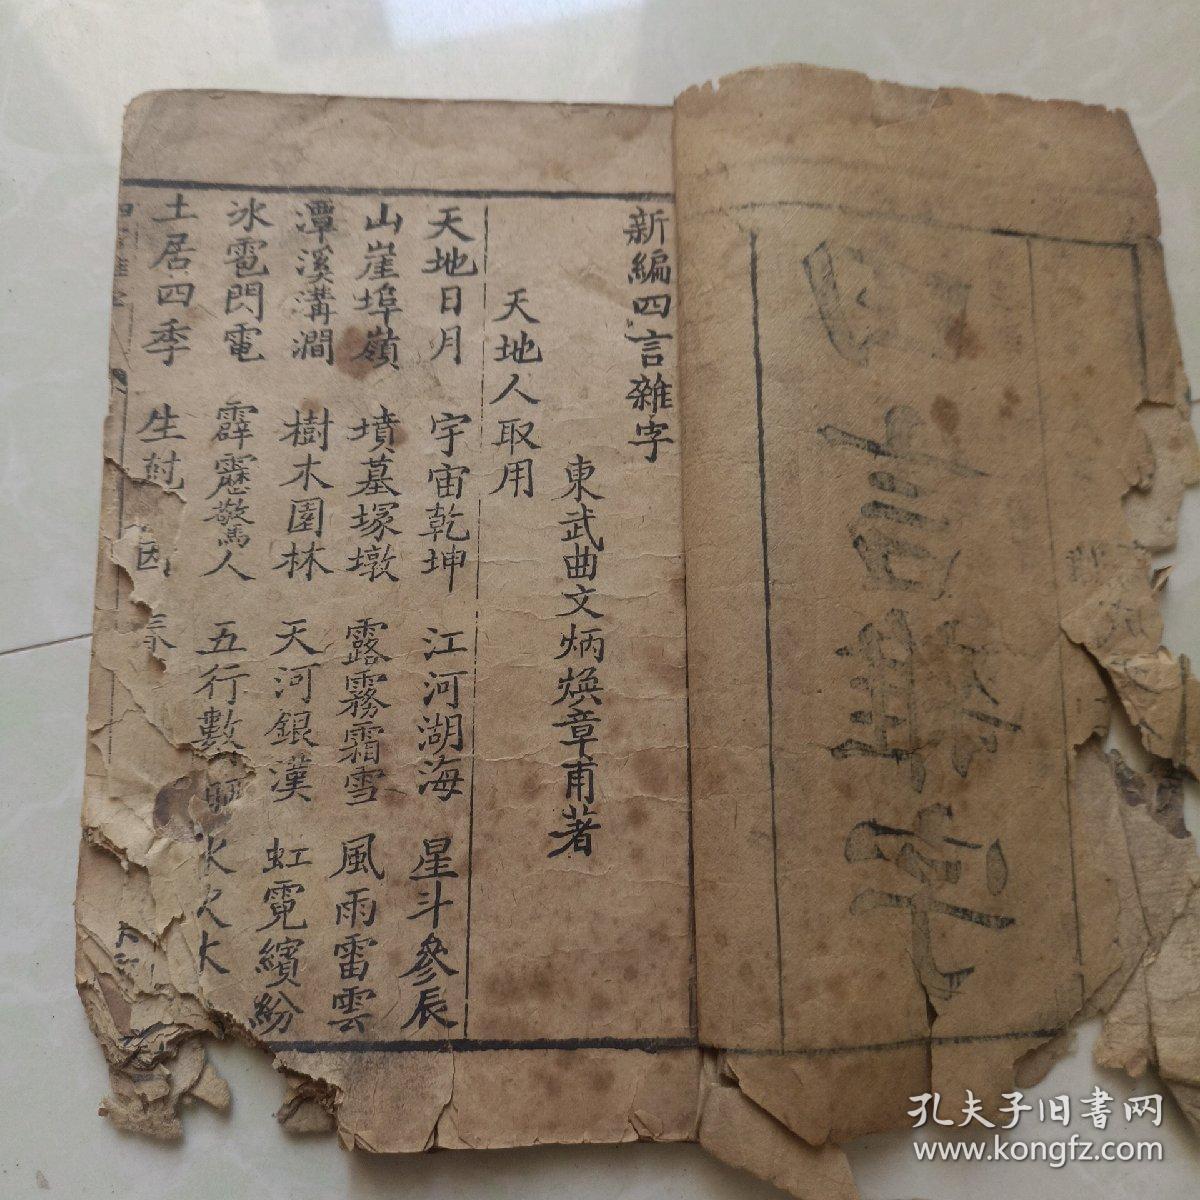 四言雜字
新編四言雜字
東武曲文炳煥章甫著
天地人取用
天地日月 宇宙乾坤 江河湖海 星斗參辰
山崖埠嶺 墳墓塚墩 露霧霜雪 風雨雷雲
潭溪溝澗 樹木園林 天河銀漢 虹霓繽紛
氷雹閃電 霹靂驚人 五行數 水火木
土居四季 生尅
孔夫子旧书网
www.kongfz.com